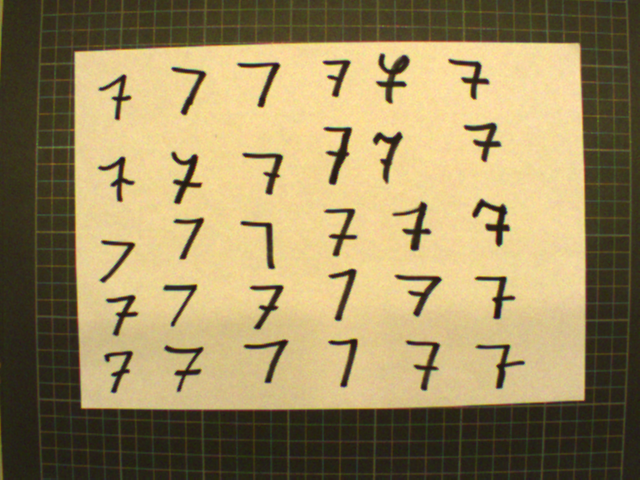 7 7 7 7 7 7
7 7 7 7 7 7
7 7 7 7 7 7
7 7 7 7 7 7
7 7 7 7 7 7